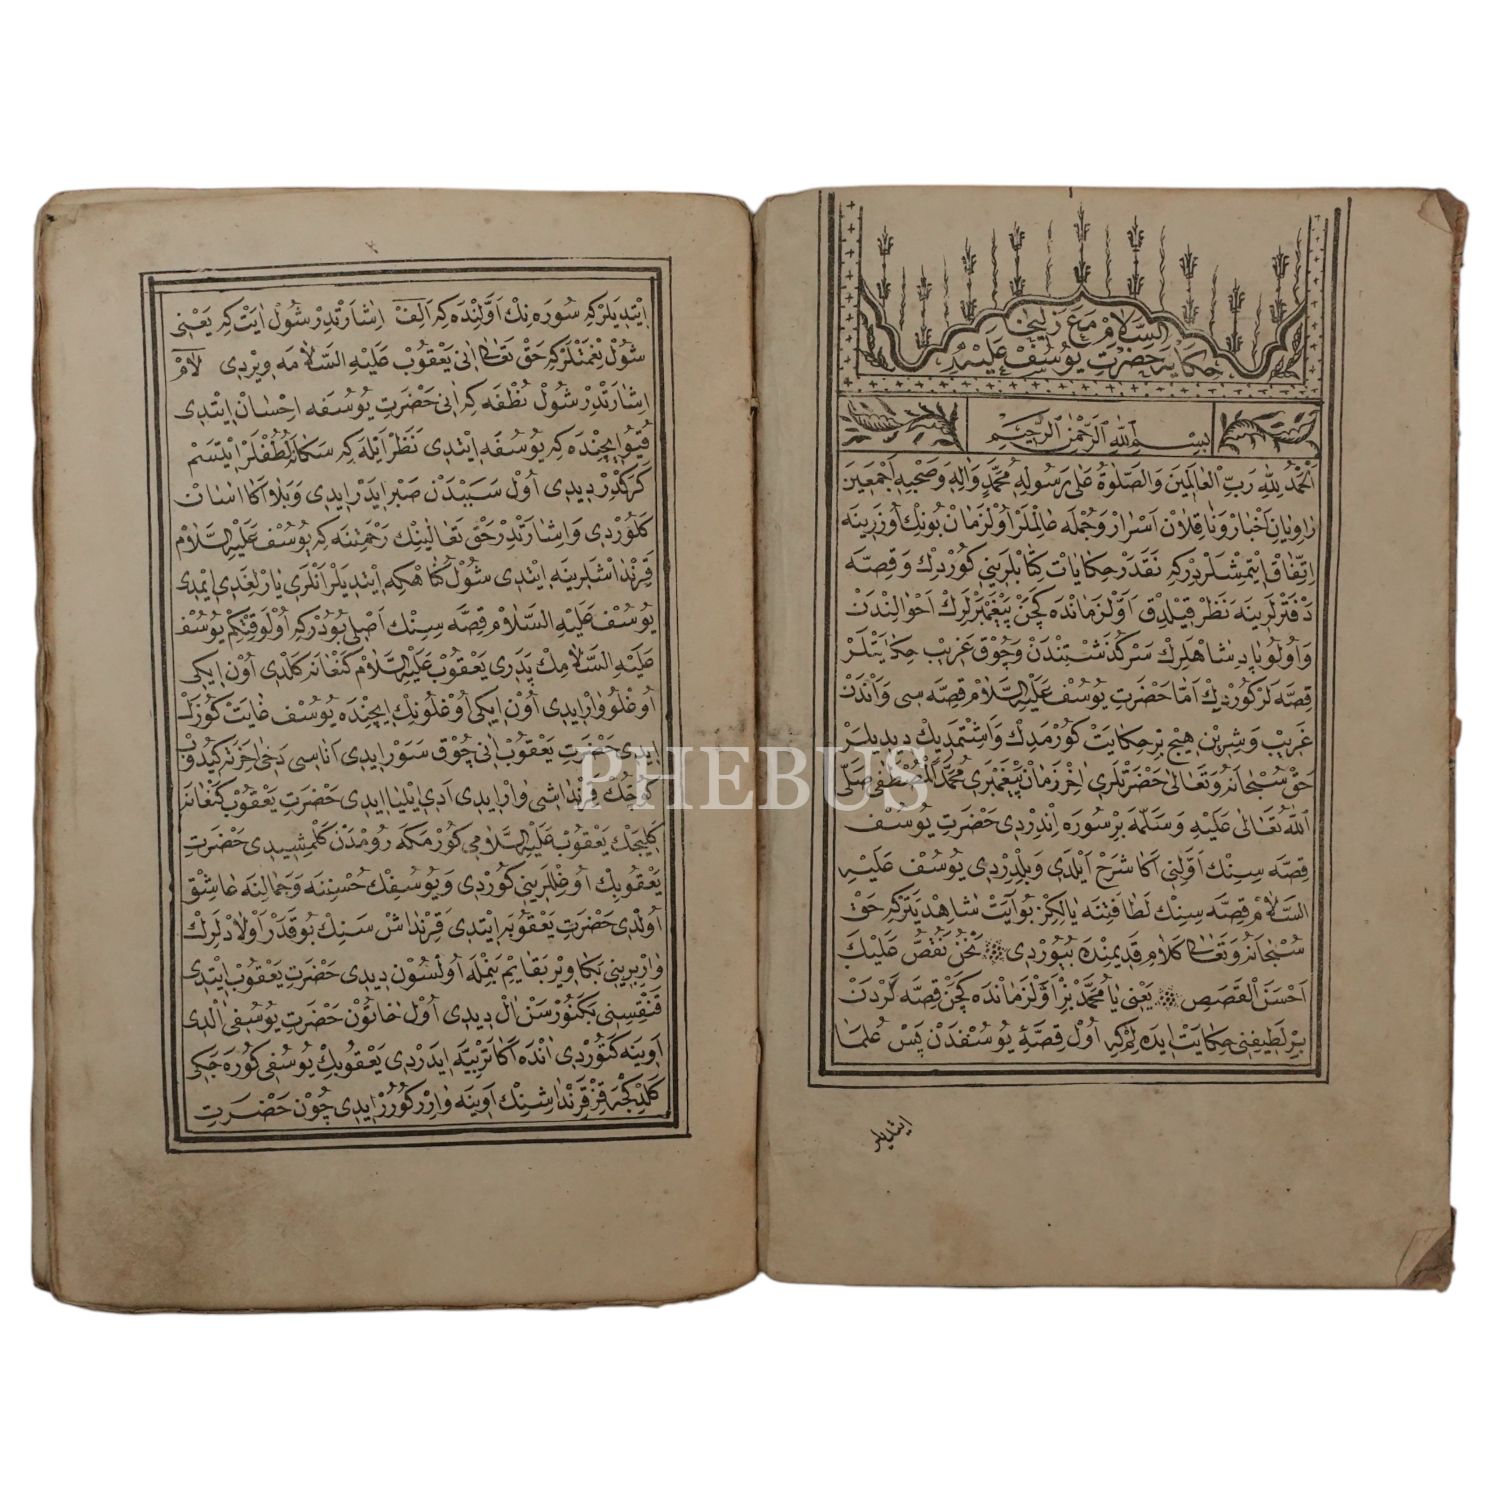 حكاية حضرت يوسف عليه
السلام مع زليخا
بسم الله الرحمن الرحيم
الحمد لله رب العالمين والصلوة على رسوله محمد واله وصحبه اجمعين
راويان اخبار وناقلان اسرار وجمله عالملر اولزمان بونك اوزرينه
اتفاق ايتمشلردركه نقدر حكايات كتابلريني كوردك وقصه
دفترلرينه نظر قيلدق اولزمانده كچن پيغمبرلرك احوالندن
واولو پادشاهلرك سركذشتندن وچوق غريب حكايتلر
قصه لر كوردك اما حضرت يوسف عليه السلام قصه سى واندن
غريب وشيرين هيچ بر حكايت كورمدك واشتمديك ديديلر
حق سبحانه وتعالى حضرتلرى اخر زمان پيغمبرى محمد المصطفى صلى
الله تعالى عليه وسلمه بر سوره اندردى حضرت يوسف
قصه سنك اولنى اكا شرح ايلدى وبلدردى يوسف عليه
السلام قصه سنك لطافتنه يالكز بو ايت شاهد يتركه حق
سبحانه وتعالى كلام قديمنده بيوردى نحن نقص عليك
احسن القصص يعنى يا محمد بز اولزمانده كچن قصه لردن
بر لطيفنى حكايت ايده لم كه اول قصۀ يوسفدن پس علما
ايتديلر
ايتديلركه سوره نك اولنده كه الف اشارتدر شول ايت كه يعنى
شول نعمتلركه حق تعالى انى يعقوب عليه السلامه ويردى لام
اشارتدر شول لطفه كه انى حضرت يوسفه احسان ايتدى
قيو ايچنده كه يوسفه ايتدى نظر ايله كه سكا نه لطفلر ايتسم
كركدر ديدى اول سببدن صبر ايدر ايدى وبلا اكا اسان
كلوردى واشارتدر حق تعالينك رحمتنه كه يوسف عليه السلام
قرنداشلرينه ايتدى شول كناهكه ايتديلر انلرى يارلغدى ايمدى
يوسف عليه السلام قصه سنك اصلى بودركه اولوقتكم يوسف
عليه السلامك پدرى يعقوب عليه السلام كنعانه كلدى اون ايكى
اوغلو وار ايدى اون ايكى اوغلونك ايچنده يوسف غايت كوزل
ايدى حضرت يعقوب انى چوق سور ايدى اناسى دخى اخرته كيدوب
كوچك قرنداشى وار ايدى ادى ايليا ايدى حضرت يعقوب كنعانه
كليجك يعقوب عليه السلامى كورمكه رومدن كلمشيدى حضرت
يعقوبك اوغللريني كوردى ويوسفك حسننه وجمالنه عاشق
اولدى حضرت يعقوبه ايتدى قرنداش سنك بو قدر اولادلرك
وار بريني بكا وير بقايم بنمله اولسون ديدى حضرت يعقوب ايتدى
قنقيسنى بكنورسن ال ديدى اول خاتون حضرت يوسفى الدى
اوينه كتوردى انده اكا تربيه ايدردى يعقوبك يوسفى كوره جكى
كلدكجه قز قرنداشنك اوينه وارر كورر ايدى چون حضرت
PHEBUS